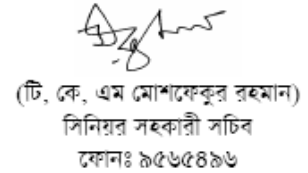 (টি, কে, এম মোশফেকুর রহমান)
সিনিয়র সহকারী সচিব
ফোনঃ ৯৫৬৫৪৯৬